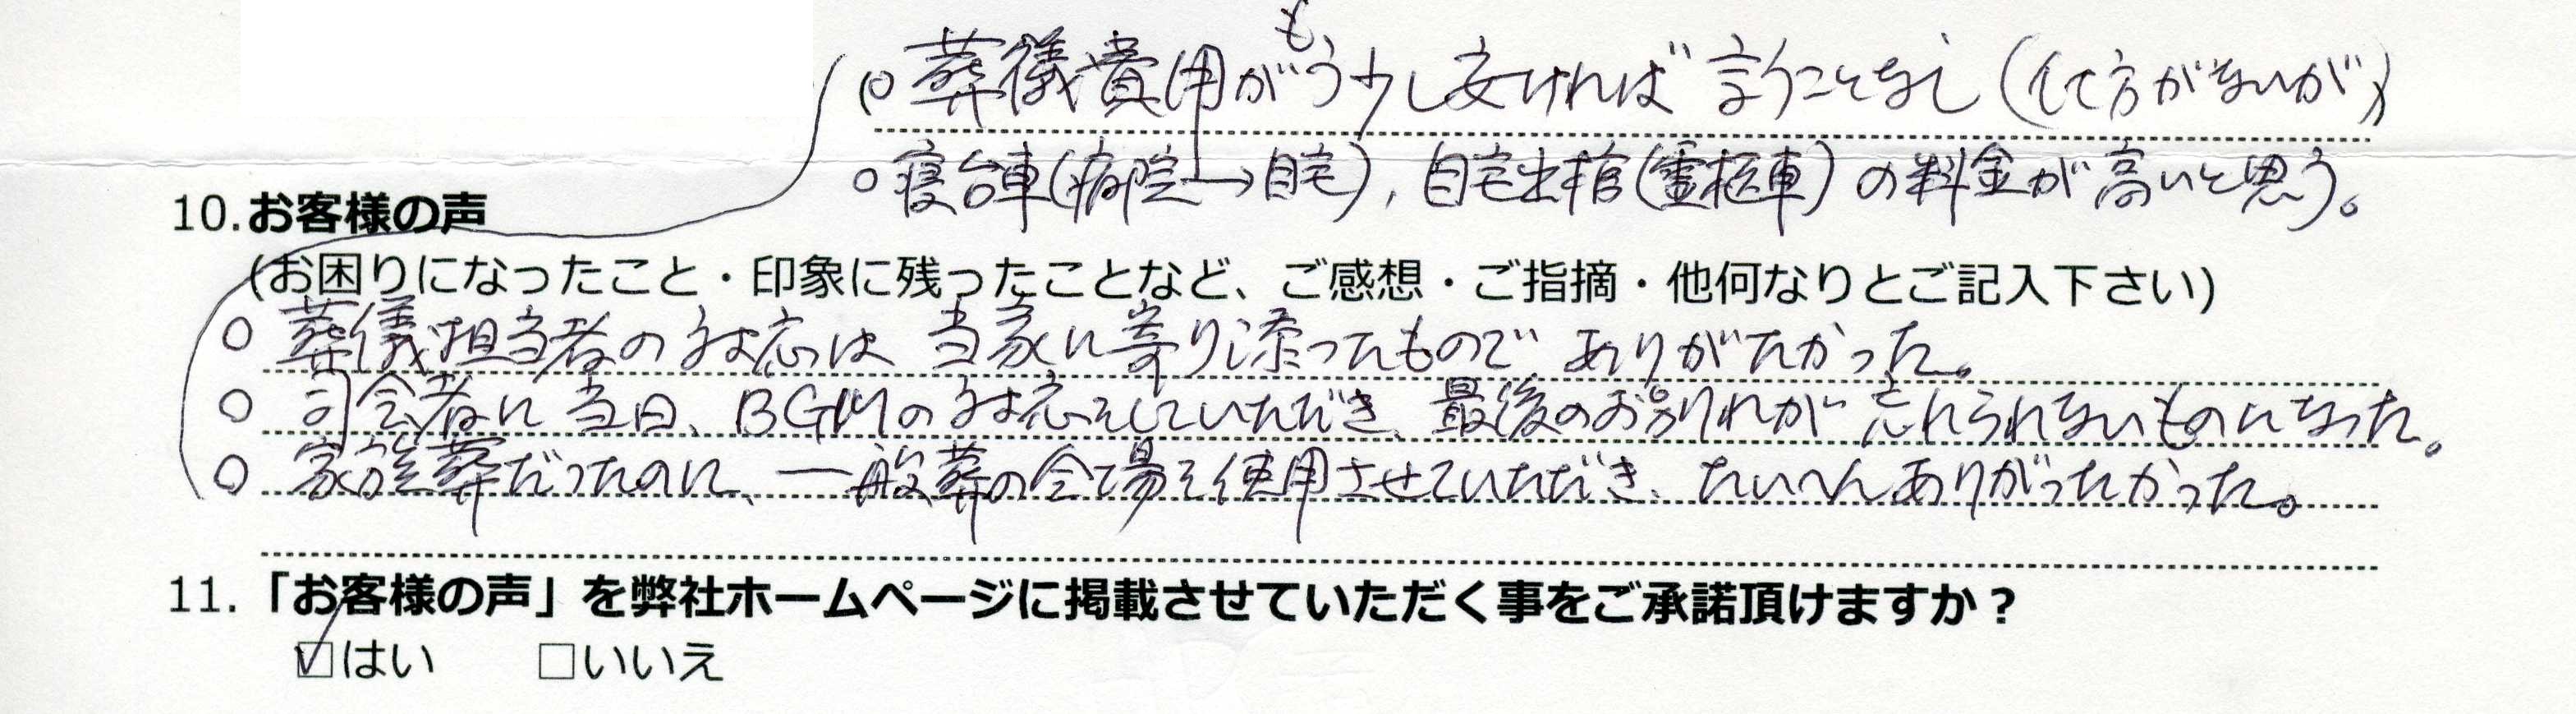 ○葬儀費用がもう少し安ければ言うことなし(仕方がないが)
○寝台車(病院→自宅),自宅出棺(霊柩車)の料金が高いと思う。
10.お客様の声
(お困りになったこと・印象に残ったことなど、ご感想・ご指摘・他何なりとご記入下さい)
○ 葬儀担当者の対応は 当家に寄り添ったもので ありがたかった。
○ 司会者に当日、BGMの対応をしていただき、最後のお別れが 忘れられないものになった。
○ 家族葬だったのに、一般葬の会場を使用させていただき、たいへんありがったかった。
11.「お客様の声」を弊社ホームページに掲載させていただく事をご承諾頂けますか？
☑はい □いいえ